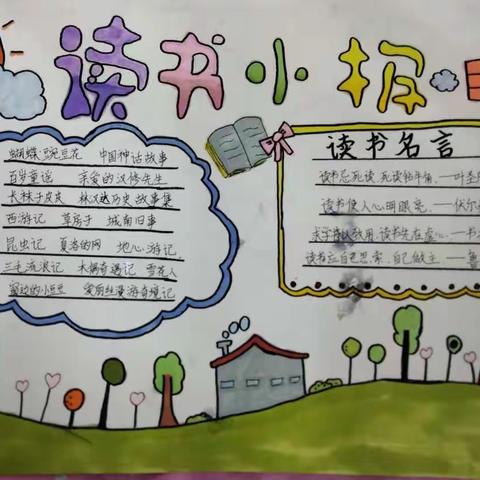 读书小报
蝴蝶·豌豆花 中国神话故事
百岁童谣 亲爱的汉修先生
长袜子皮皮 林汉达历史故事集
西游记 草房子 城南旧事
昆虫记 夏洛的网 地心游记
三毛流浪记 木偶奇遇记 雪花人
窗边的小豆豆 爱丽丝漫游奇境记
读书名言
读书忌死读,死读钻牛角。——叶圣
读书使人心明眼亮。——伏尔
读书先在虚心。——
读书应自己思索,自己做主——鲁